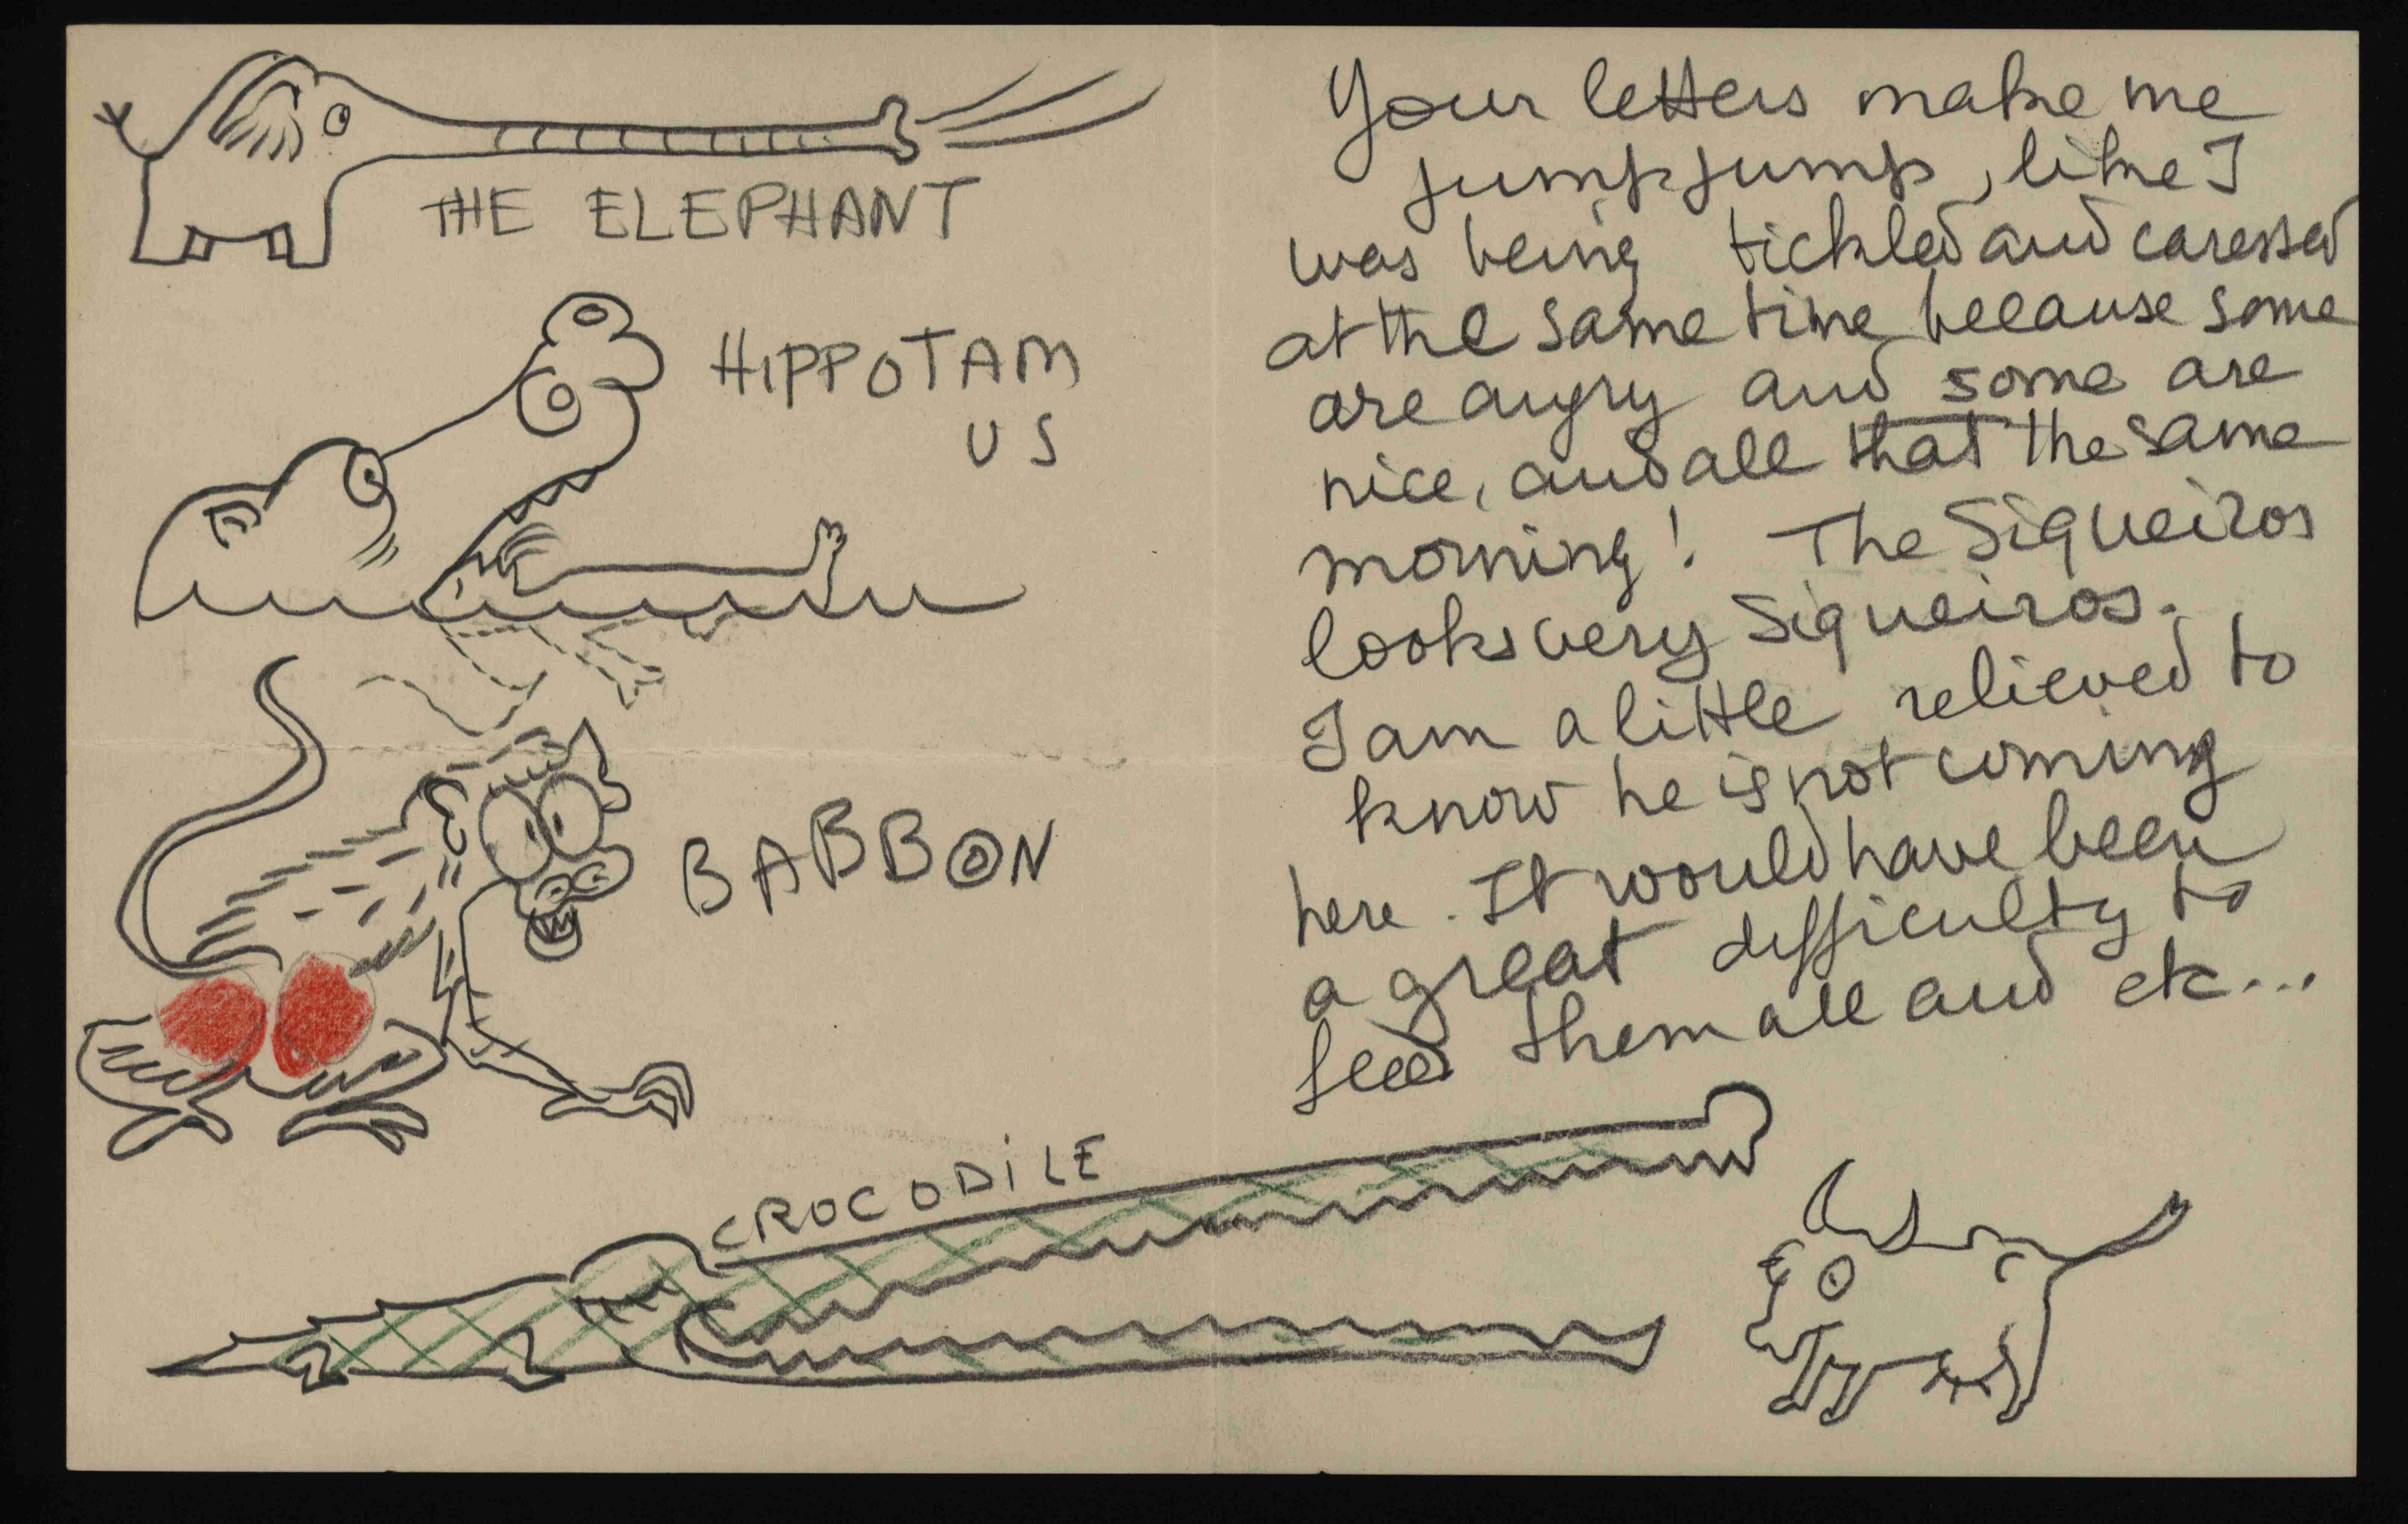 THE ELEPHANT
HIPPOTAM
US
BABBON
CROCODILE
Your letters make me
jumpjump, like I
was being tickled and caressed
at the same time because some
are angry and some are
nice, and all that the same
morning! The Siqueiros
looks very Siqueiros.
I am a little relieved to
know he is not coming
here. It would have been
a great difficulty to
feed them all and etc...